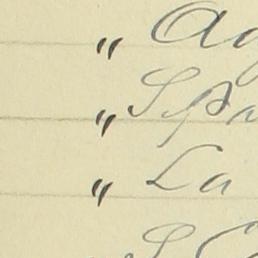 " Ag
" Spa
" La